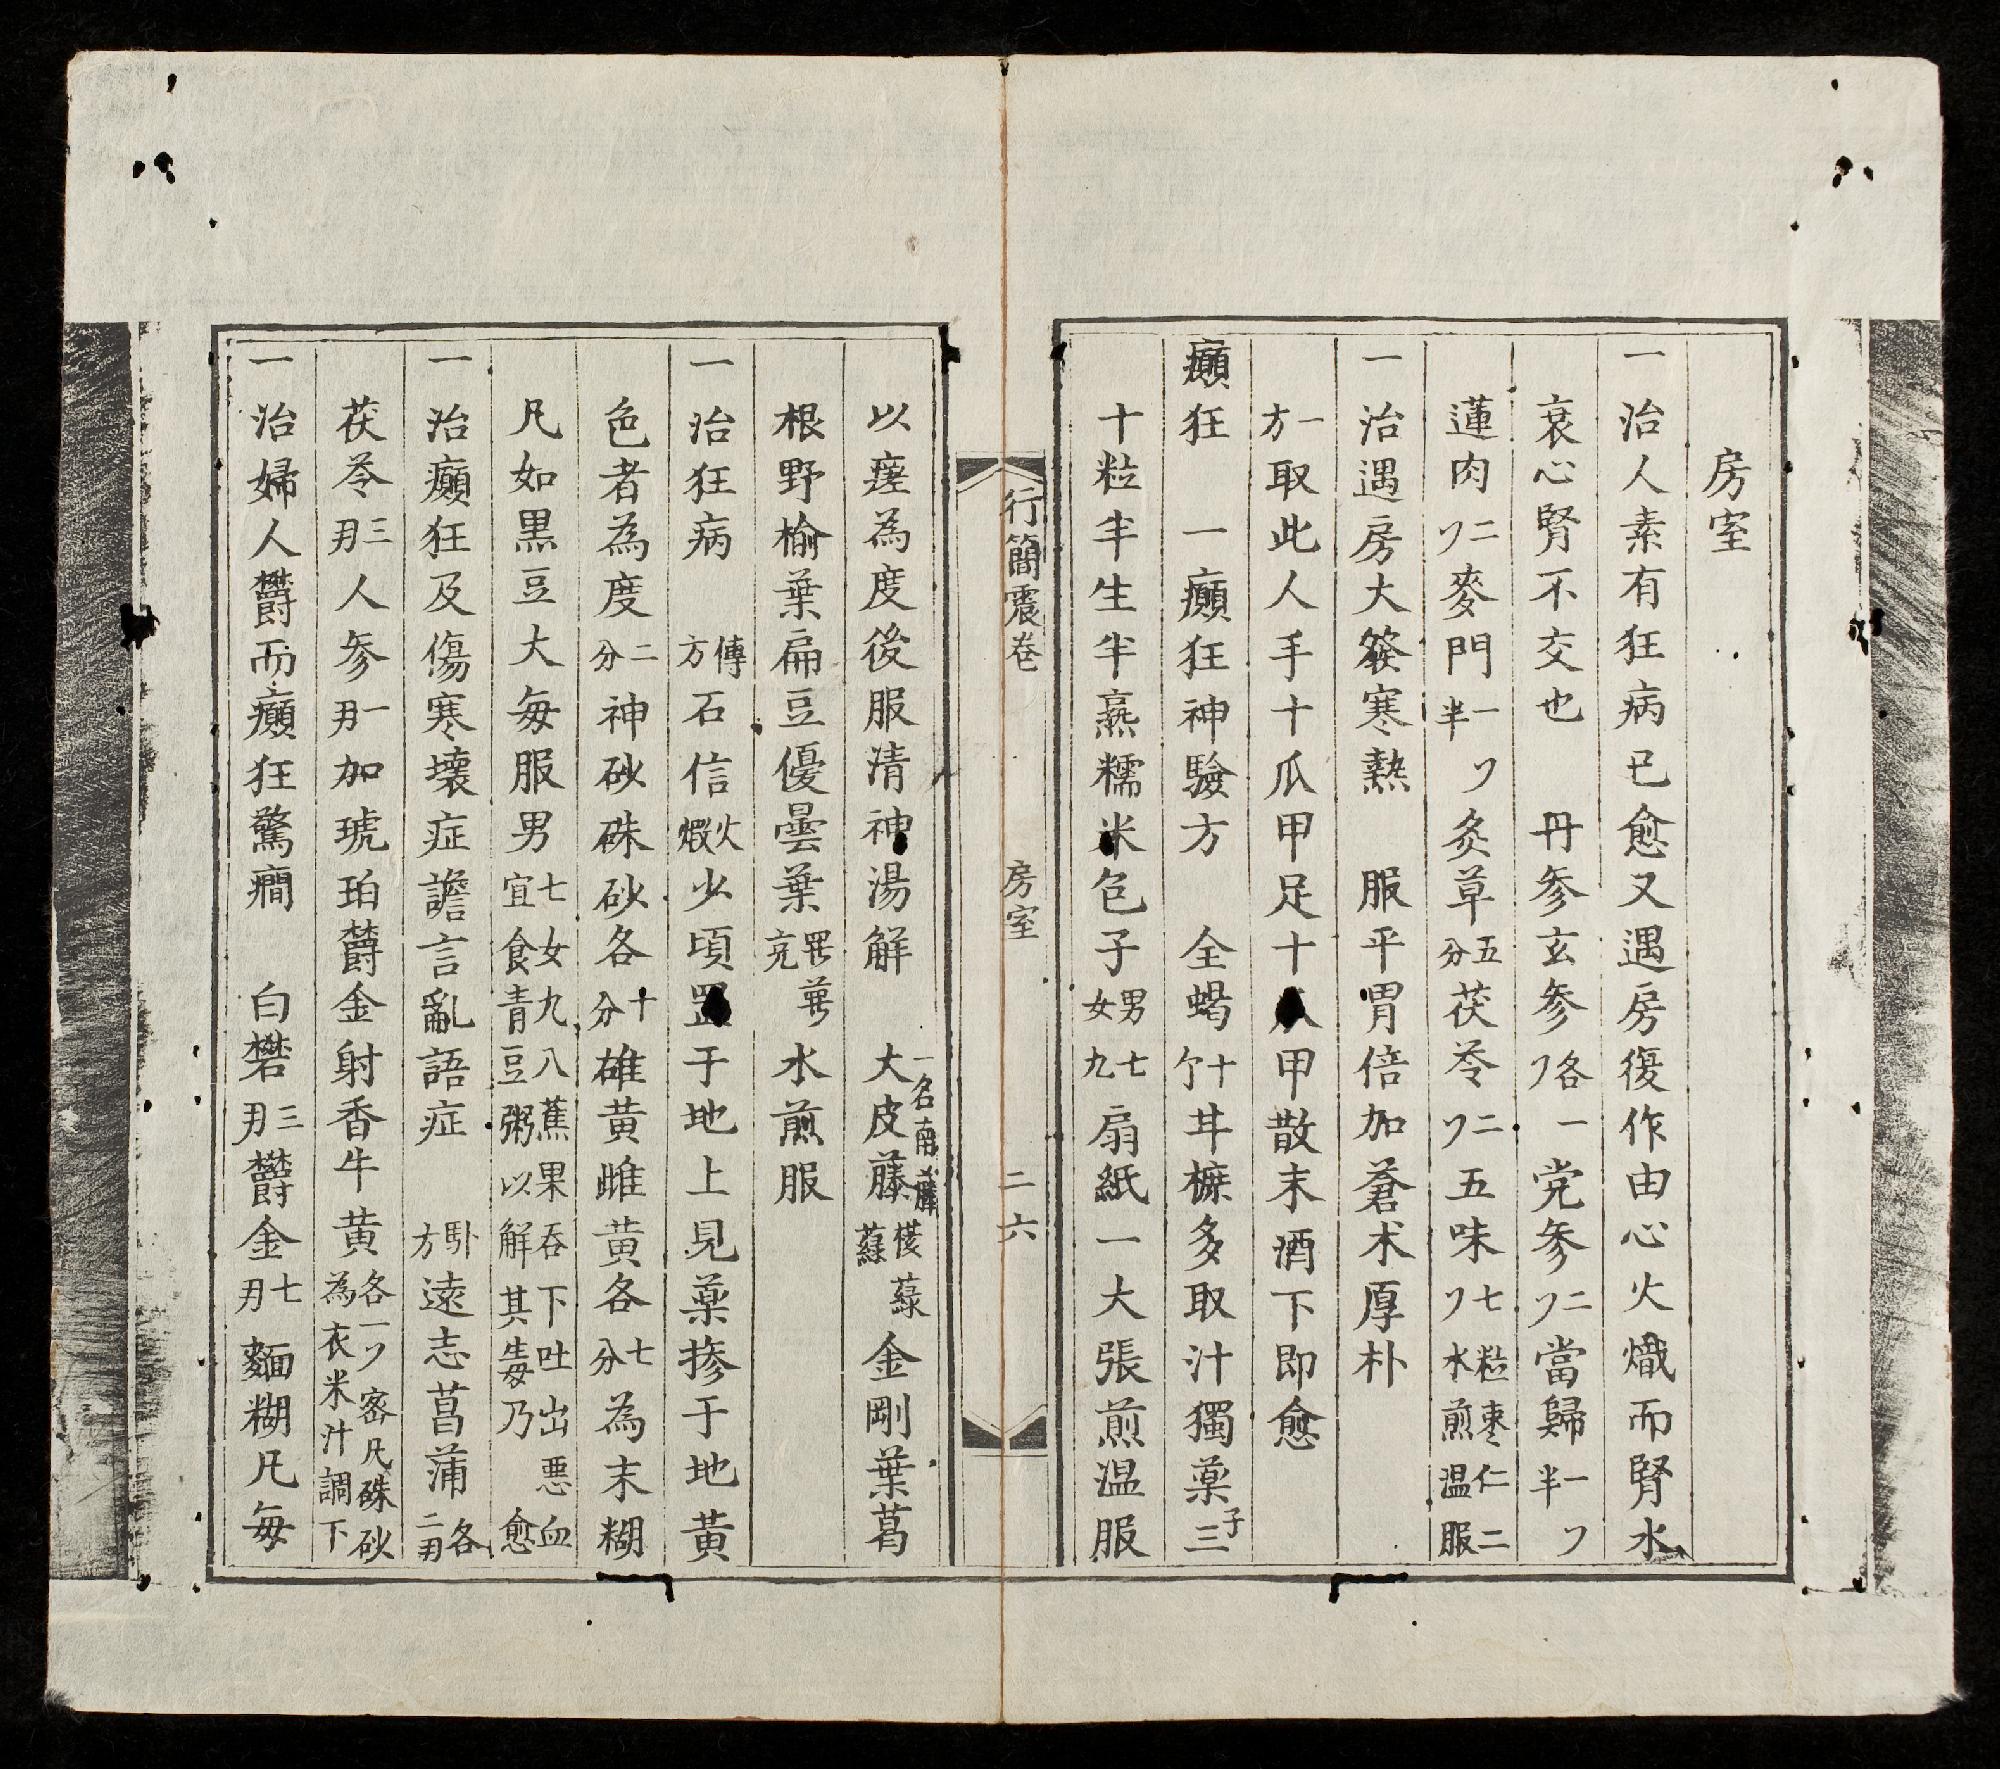 房室
一治人素有狂病已愈又遇房復作由心火熾而腎水
衰心腎不交也 丹參玄參各一党參二當歸一半
蓮肉二麥門一半灸草五分茯苓二五味七粒棗仁二水煎温服
一治遇房大發寒熱 服平胃倍加蒼朮厚朴
一方取此人手十爪甲足十爪甲散末酒下即愈
癲狂 一癲狂神驗方 全蝎十多取汁獨藥子三
十粒半生半熟糯米包子男七女九扇紙一大張煎温服
行簡震卷 房室 二六
以瘥為度後服清神湯解 大皮藤一名南藤金剛葉葛
根野榆葉扁豆優曇葉水煎服
一治狂病 傳方石信火煆少頃置于地上見藥摻于地黃
色者為度二分神砂硃砂各十分雄黃雌黃各七分為末糊
凡如黑豆大每服男七女九八蕉果吞下吐出悪血宜食青豆粥以解其毒乃愈
一治癲狂及傷寒壞症譫言亂語症 方遠志菖蒲各二
茯苓三人參一加琥珀欝金射香牛黃各一密凡硃砂為衣米汁調下
一治婦人欝而癲狂驚癇 白礬三欝金七麵糊凡每